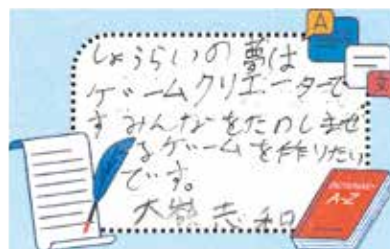 しょうらいの夢は
ゲームクリエーターで
すみんなをたのしませ
るゲームを作りたい
です。
大嶺 志和
A
文
DICTIONARY
A-Z